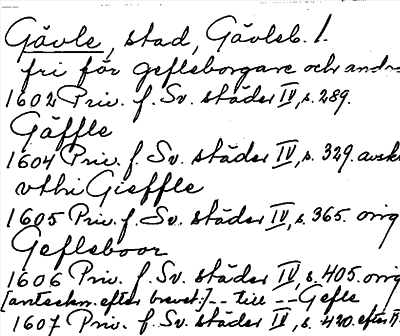 Gävle, stad, Gävleb. l.
fri för gefleborgare och andr
1602 Priv. f. Sv. städer IV, s. 289.
Gäffle
1604 Priv. f. Sv. städer IV, s. 329. avskr
vthi Gieffle
1605 Priv. f. Sv. städer IV, s. 365. orig
Gefleboor
1606 Priv. f. Sv. städer IV, s. 405. orig
[anteckn. efter brevet:] -- till -- Gefle
1607 Priv. f. Sv. städer IV, s. 420. efter